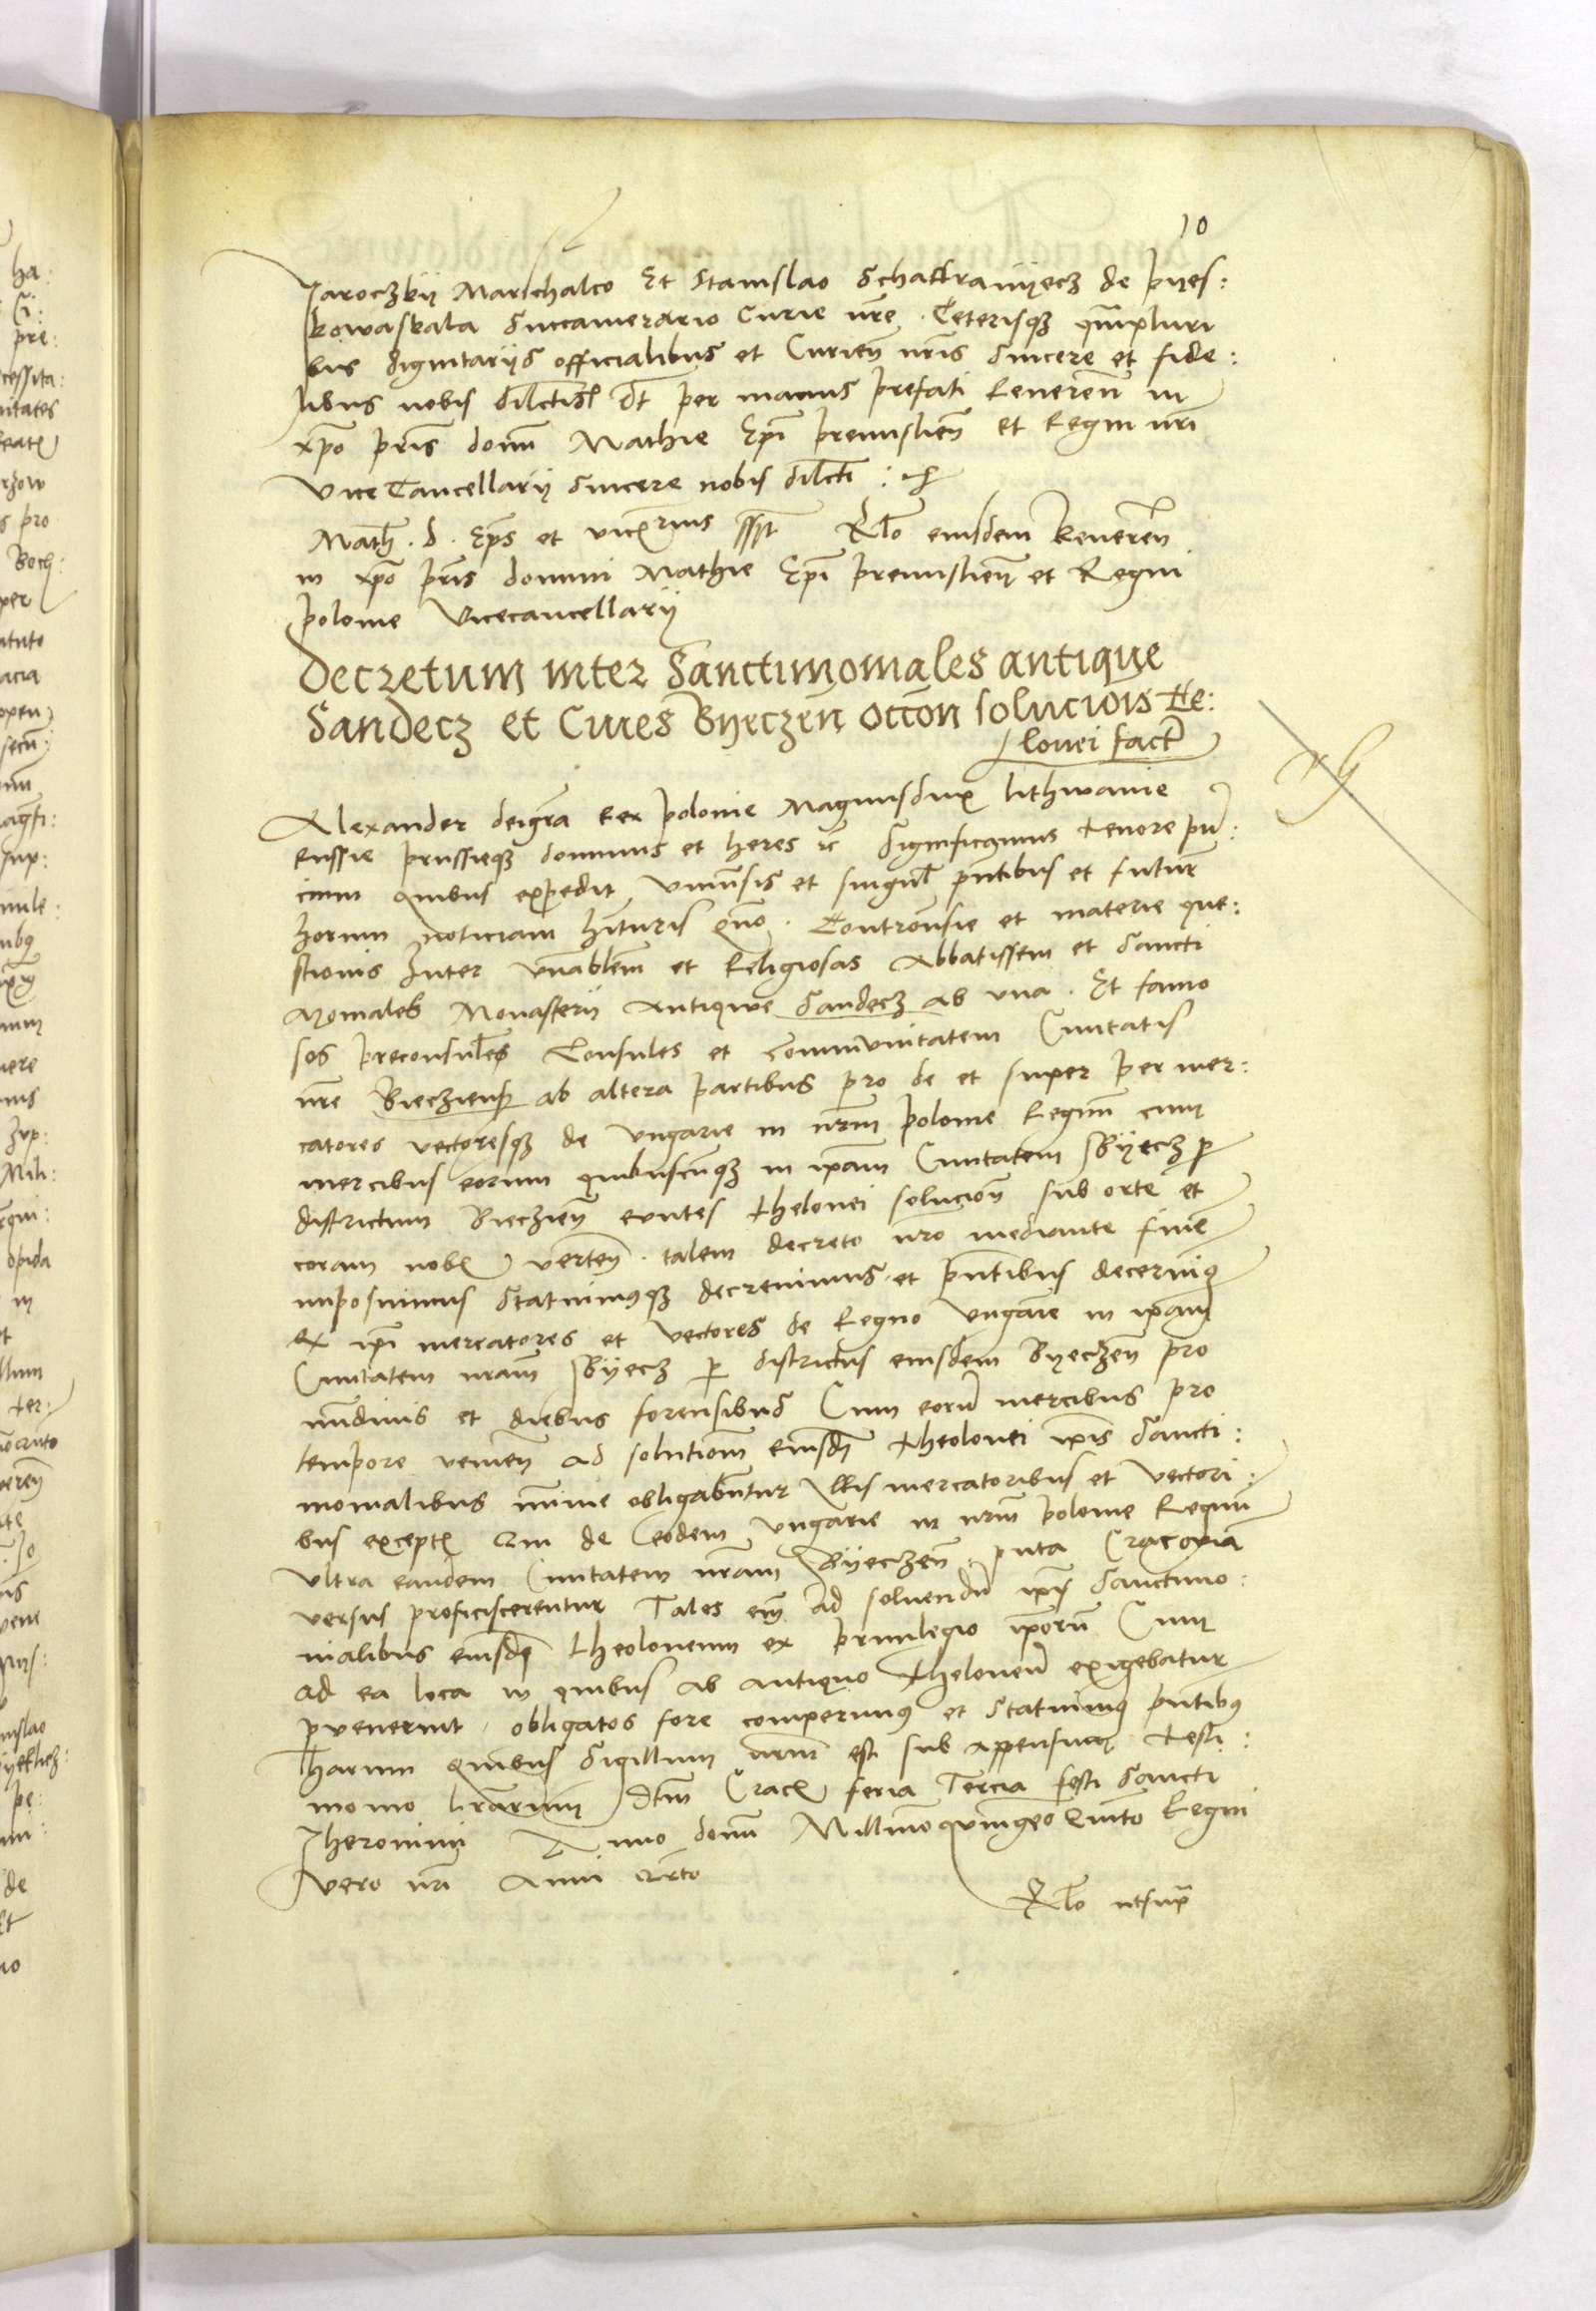 10
Jaroczkij Marschalco Et Stanislao Schaffranijecz de pijes:
kowaskala Succamerario Curie nre. Ceterisqz qmpluri
bus dignitarijs officialibus et Curien nris Sincere et fide:
libus nobis dilctis Dt per manus prefati Reueren in
xpo pris domi Mathie Epi premislien et Regni nri
Vice Cancellarij Sincere nobis dilcti:
Math. d. Eps et vicecrius sspt Rlo eiusdem Reueren
in xpo pris domini Mathie Epi premislien et Regni
polonie Vicecancellarij
Decretum inter Sanctimoniales antique
Sandecz et Ciues Bijeczen occon soluciois Te:
lonei fact
Alexander deigra Rex polonie Magnusdux lithwanie
Russie prussieqz dominus et heres rc Significamus tenore pn:
cium quibus expedit vniuersis et singul pntibus et futur
horum noticiam hituris quo. Controusie et materie que:
stionis Inter vnablem et Religiosas Abbatissem et Sancti
Moniales Monasterij Antique Sandecz ab vna. Et famo
sos preconsules Consules et communitatem Ciuitatis
nre Biecziens ab altera partibus pro de et super per mer:
catores vectoresqz de Vngarie in nrm polonie Regnu cum
mercibus eorum quibuscuqz in ipam Ciuitatem Bijecz p
districtum Bieczien euntes thelonei solucion sub orte et
coram nob verten. talem decreto nro mediante fine
imposuimus Statuimusqz decreuimus et pntibus decernimg
Ex ipi mercatores et vectores de Regno Vngarie in ipam
Ciuitatem nram Bijecz p districtus eiusdem Bijeczen pro
nundinis et diebus forensibus Cum eoru mercibus pro
tempore venien ad solutiom eiusdm theolonei ipis Sancti:
monialibus mime obligabuntur Illis mercatoribus et vectori:
bus except Qui de eodem Vngarie in nrm polonie Regnu
Vltra eandem Ciuitatem nram Bijeczen puta Cracouia
versus proficiscerentur Tales em ad soluendu ipis Sanctimo:
nialibus eiusde theoloneum ex priuilegio iporu Cum
ad ea loca in quibus ab antiquo theloneu exigebatur
puenerint. obligatos fore comperimus et Statuimg pntibus
Tharum quibus Sigillum nrm est sub appensum testi:
monio lrarum Dtm Crac feria Tercia festi Sancti
Jheronimi Anno domi Millimoquingeo Quinto Regni
vero nri Anni Qrto
Rlo utsupra